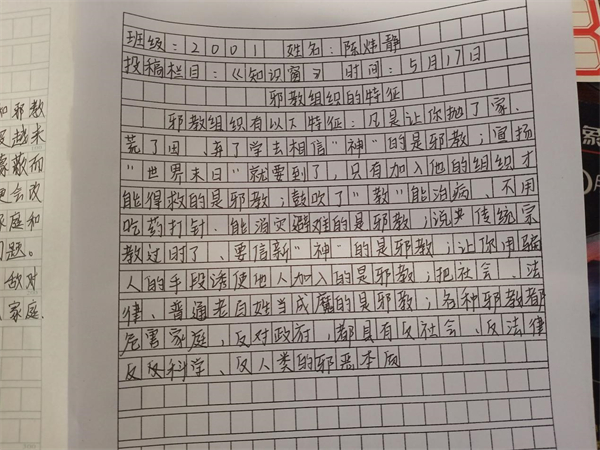 班级：2001 姓名：陈炜静
投稿栏目：《知识窗》 时间：5月17日
邪教组织的特征
邪教组织有以下特征：凡是让你抛了家、
荒了田、弃了学去相信"神"的是邪教；宣扬
"世界末日"就要到了，只有加入他的组织才
能得救的是邪教；鼓吹了"教"能治病、不用
吃药打针.能消灾避难的是邪教；说夹传统宗
教过时了、要信新"神"的是邪教；让你用骗
人的手段诱使他人加入的是邪教；把社会、法
律、普通老百姓当成魔的是邪教；各种邪教都
危害家庭，反对政府，都具有反社会、反法律
反反科学、反人类的邪恶本质
如邪教
越来
蒙蔽而
更会改
家庭和
问题。
敌对
家庭.